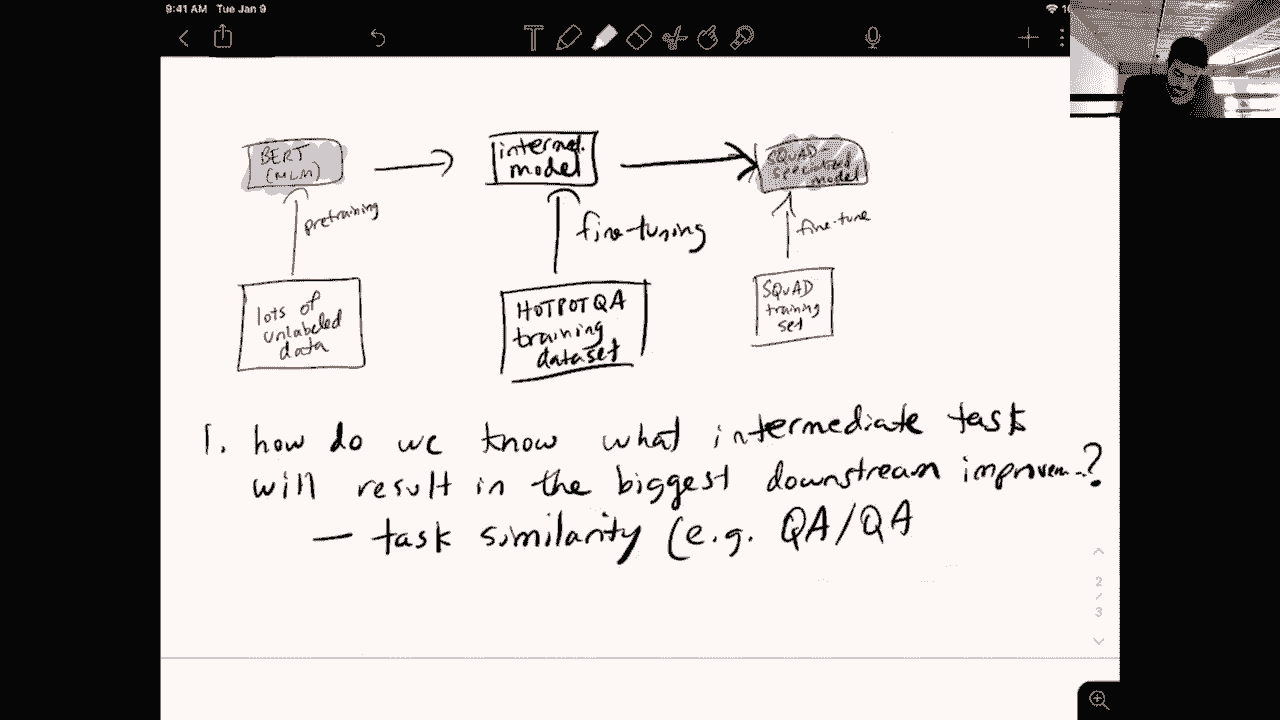 9:41 AM Tue Jan 9
BERT
(MLM)
intermed.
model
SQUAD-
model
pretraining
fine-tuning
fine-tune
lots of
unlabeled
data
HOTPOTQA
training
dataset
SQUAD
training
set
1. how do we know what intermediate task
will result in the biggest downstream improvem...?
— task similarity (e.g. QA/QA
2
/
3